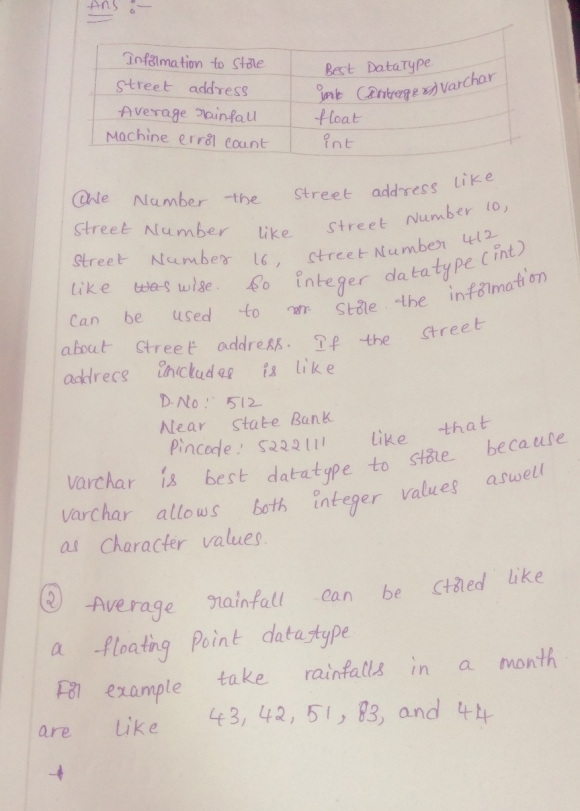 Ans :-
Information to Store Best DataType
Street address int (Integer) Varchar
Average rainfall float
Machine error count int
① We Number the Street address like
Street Number like Street Number 10,
Street Number 16, Street Number 412
like wise. So integer datatype (int)
Can be used to store the information
about Street address. If the street
address includes is like
D.No: 512
Near State Bank
Pincode: 5222111 like that
Varchar is best datatype to store because
Varchar allows both integer values aswell
as Character values.
② Average rainfall can be stored like
a floating Point datatype
For example take rainfalls in a month
are like 43, 42, 51, 83, and 44